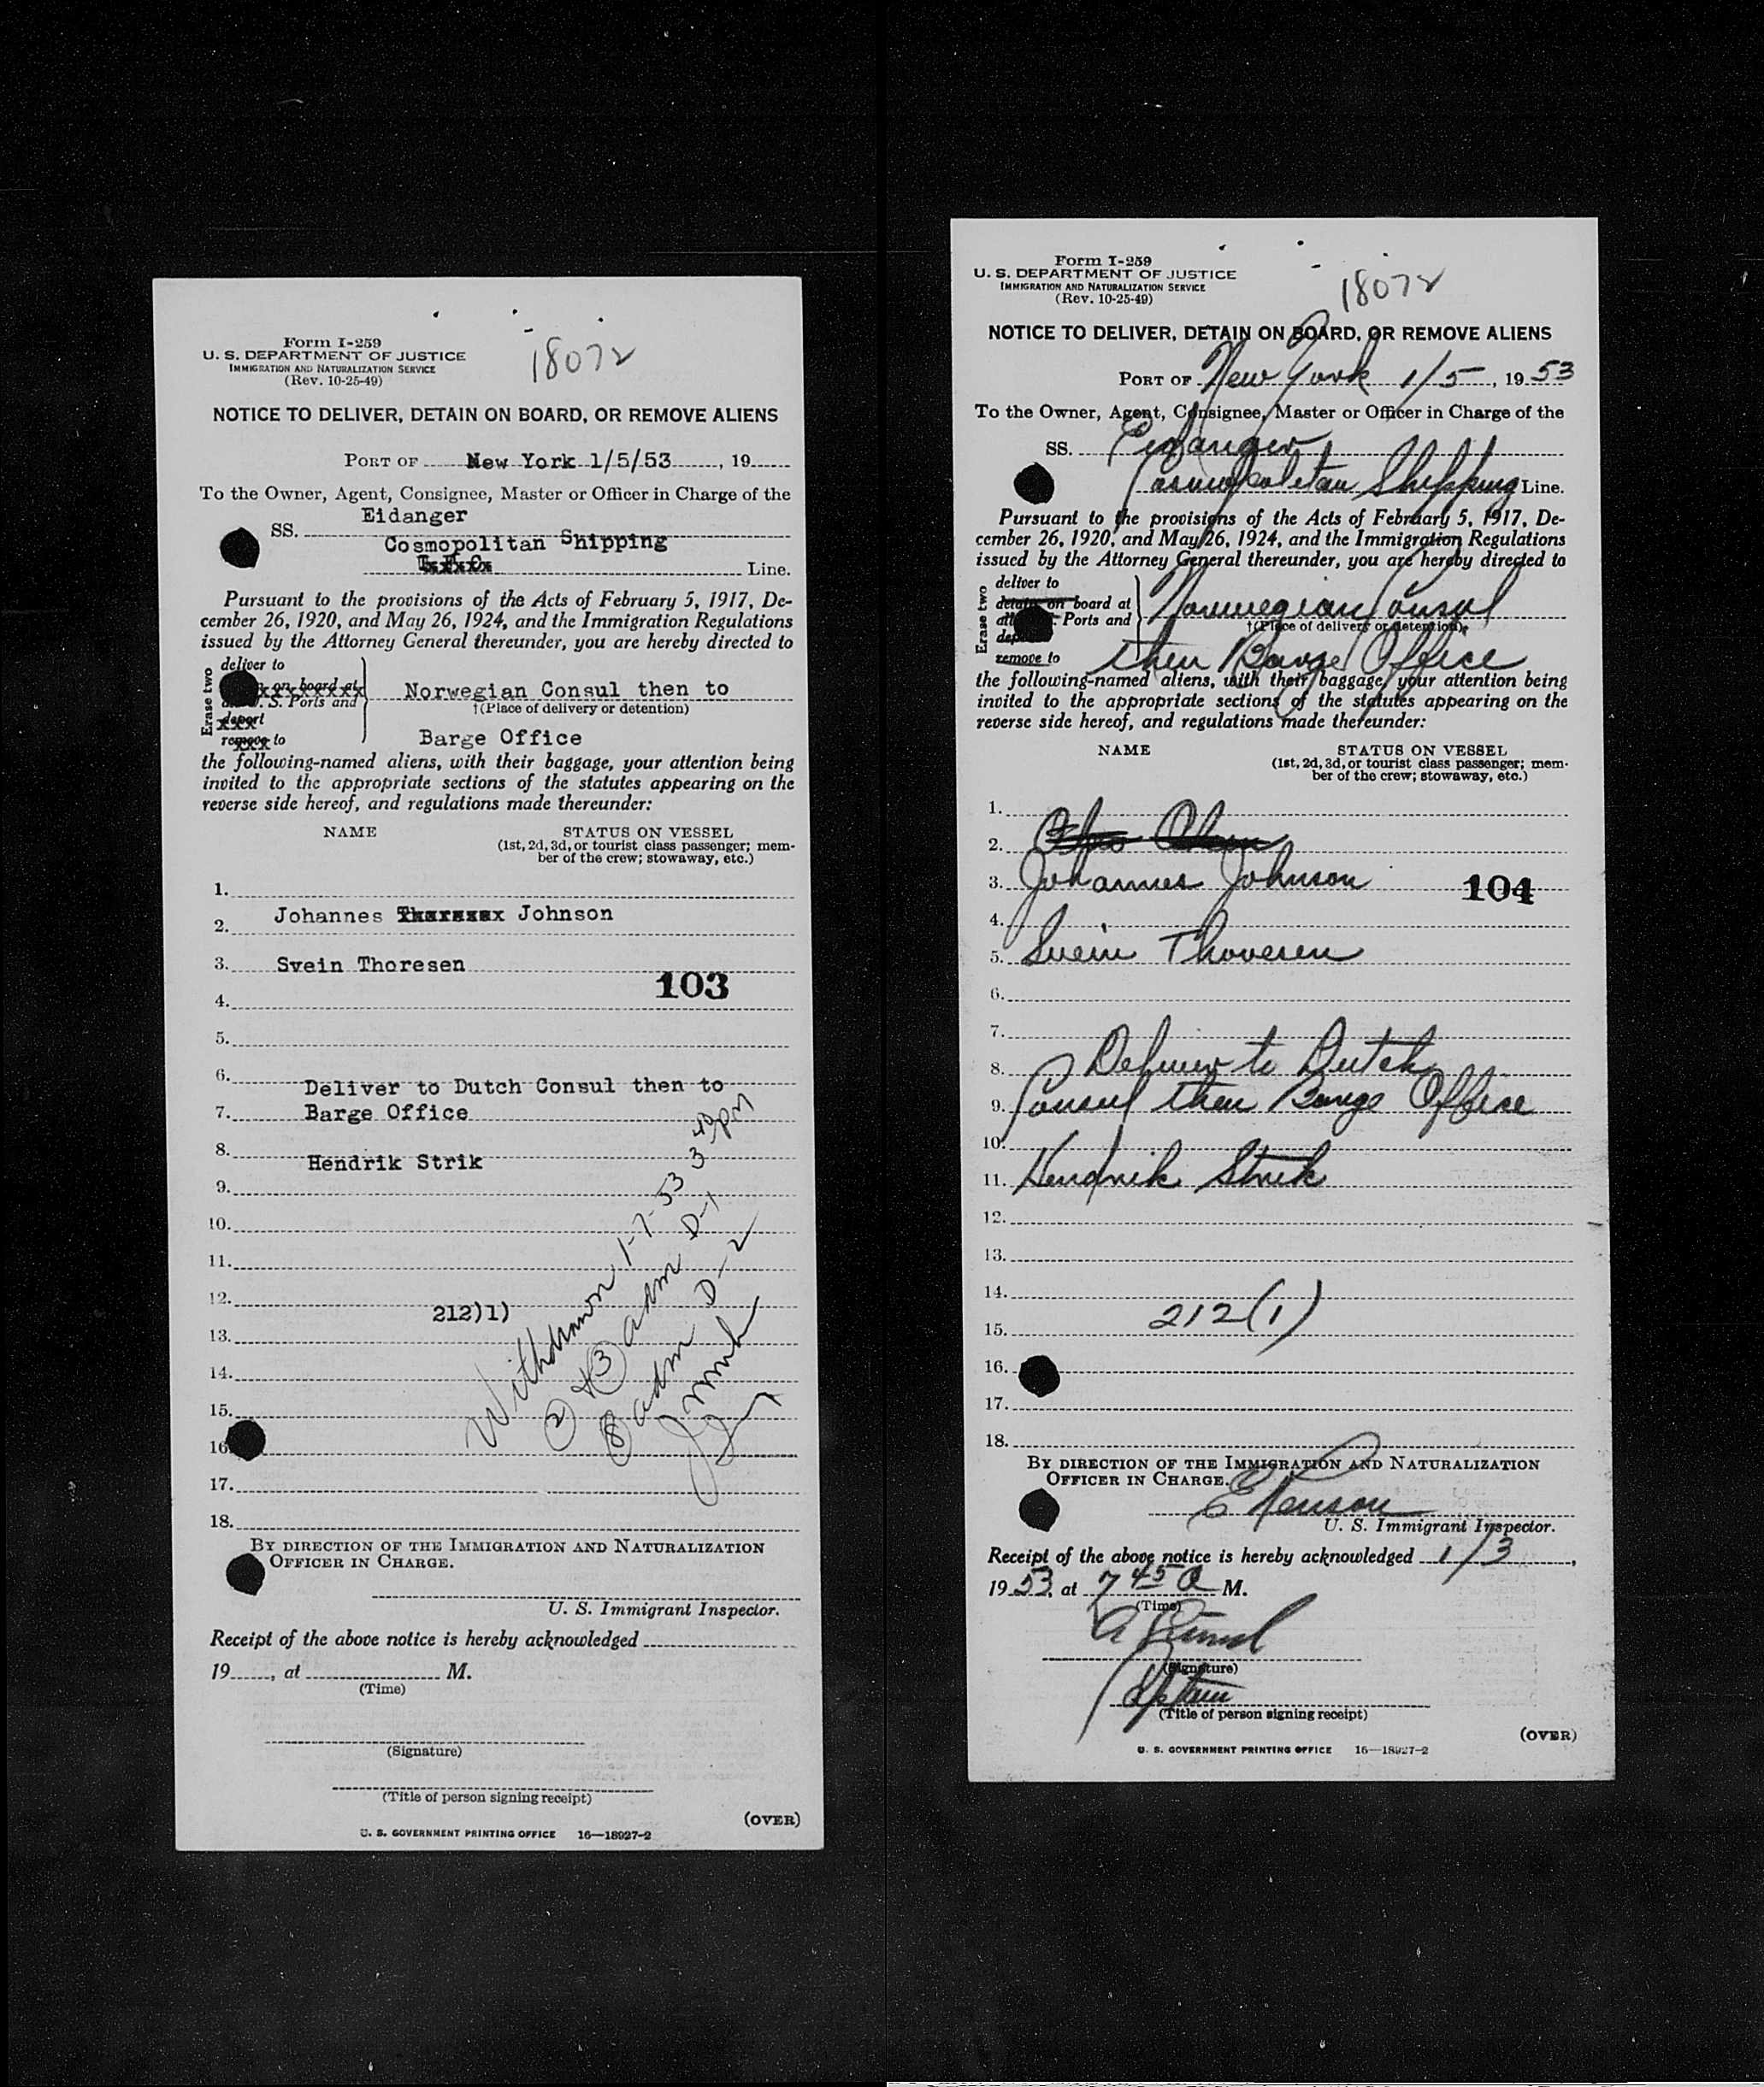 Form I-259
U. S. DEPARTMENT OF JUSTICE
IMMIGRATION AND NATURALIZATION SERVICE
(Rev. 10-25-49)
18072
NOTICE TO DELIVER, DETAIN ON BOARD, OR REMOVE ALIENS
PORT OF New York 1/5/53, 19
To the Owner, Agent, Consignee, Master or Officer in Charge of the
Eidanger
SS.
Cosmopolitan Shipping
Line.
Pursuant to the provisions of the Acts of February 5, 1917, De-
cember 26, 1920, and May 26, 1924, and the Immigration Regulations
issued by the Attorney General thereunder, you are hereby directed to
Erase two
deliver to
on board at
S. Ports and
deport
remove to
Norwegian Consul then to
†(Place of delivery or detention)
Barge Office
the following-named aliens, with their baggage, your attention being
invited to the appropriate sections of the statutes appearing on the
reverse side hereof, and regulations made thereunder:
NAME STATUS ON VESSEL
(1st, 2d, 3d, or tourist class passenger; mem-
ber of the crew; stowaway, etc.)
1.
2. Johannes Johnson
3. Svein Thoresen
103
4.
5.
6. Deliver to Dutch Consul then to
7. Barge Office
8. Hendrik Strik
9.
10.
11.
12. 212)1)
13.
14.
15.
16.
17.
18.
Withdrawn 1-7-53 3 40 pm
2 + 3 adm D-1
8 adm D-2
BY DIRECTION OF THE IMMIGRATION AND NATURALIZATION
OFFICER IN CHARGE.
U. S. Immigrant Inspector.
Receipt of the above notice is hereby acknowledged
19, at M.
(Time)
(Signature)
(Title of person signing receipt)
(OVER)
U. S. GOVERNMENT PRINTING OFFICE 16—18927-2
Form I-259
U. S. DEPARTMENT OF JUSTICE
IMMIGRATION AND NATURALIZATION SERVICE
(Rev. 10-25-49)
18072
NOTICE TO DELIVER, DETAIN ON BOARD, OR REMOVE ALIENS
PORT OF New York 1/5, 19 53
To the Owner, Agent, Consignee, Master or Officer in Charge of the
SS. Eidanger
Cosmopolitan Shipping Line.
Pursuant to the provisions of the Acts of February 5, 1917, De-
cember 26, 1920, and May 26, 1924, and the Immigration Regulations
issued by the Attorney General thereunder, you are hereby directed to
Erase two
deliver to
detain on board at
Ports and
remove to
Norwegian Consul
†(Place of delivery or detention)
then Barge Office
the following-named aliens, with their baggage, your attention being
invited to the appropriate sections of the statutes appearing on the
reverse side hereof, and regulations made thereunder:
NAME STATUS ON VESSEL
(1st, 2d, 3d, or tourist class passenger; mem-
ber of the crew; stowaway, etc.)
1.
2.
3. Johannes Johnson 104
4.
5. Svein Thoresen
6.
7.
8. Deliver to Dutch
9. Consul then Barge Office
10.
11. Hendrik Strik
12.
13.
14.
15. 212(1)
16.
17.
18.
BY DIRECTION OF THE IMMIGRATION AND NATURALIZATION
OFFICER IN CHARGE.
U. S. Immigrant Inspector.
Receipt of the above notice is hereby acknowledged 1/3,
19 53, at 7 45 a M.
(Time)
(Signature)
(Title of person signing receipt)
(OVER)
U. S. GOVERNMENT PRINTING OFFICE 16—18927-2